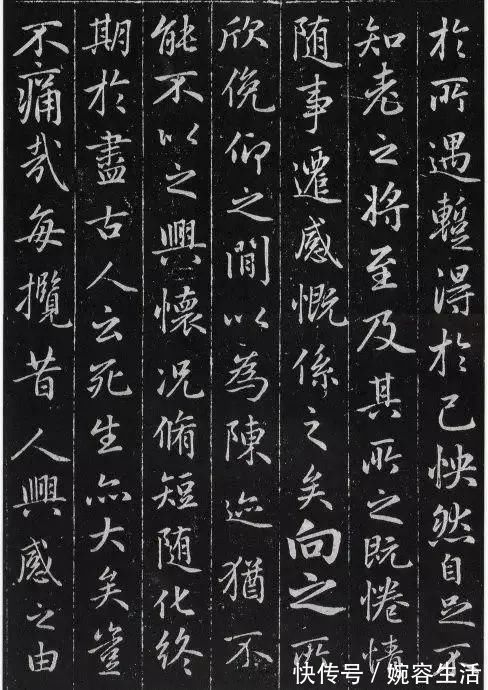 於所遇蹔得於己怏然自足不
知老之將至及其所之既惓情
隨事遷感慨係之矣向之所
欣俛仰之閒以為陳迹猶不
能不以之興懷况脩短隨化終
期於盡古人云死生亦大矣豈
不痛哉每攬昔人興感之由
快传号/婉容生活